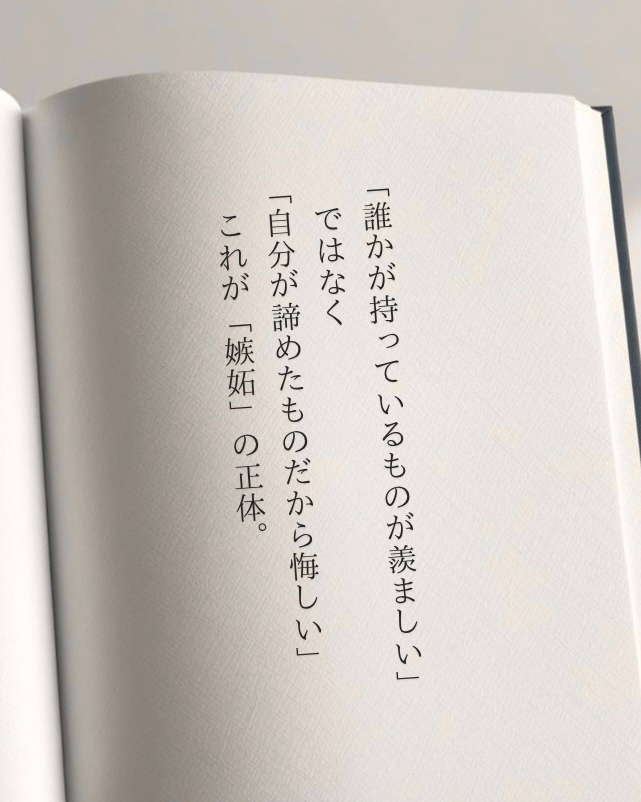 「誰かが持っているものが羨ましい」
ではなく
「自分が諦めたものだから悔しい」
これが「嫉妬」の正体。